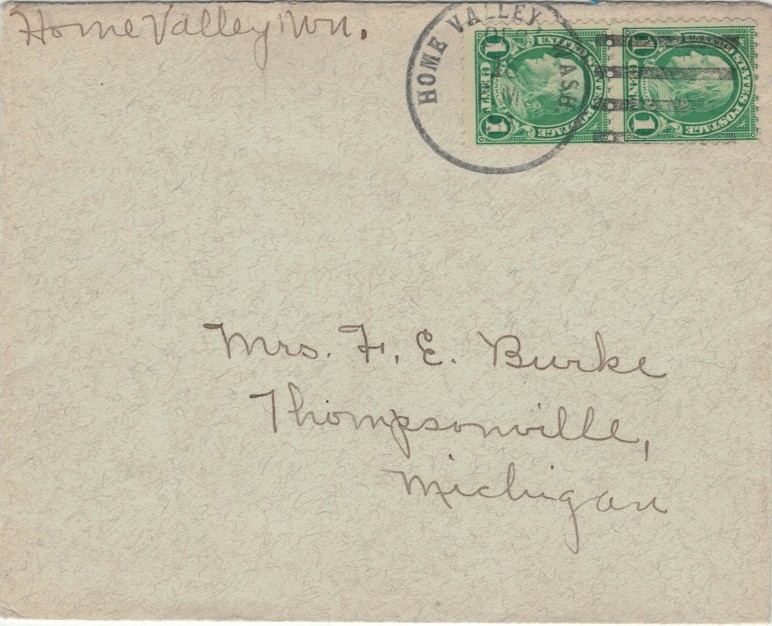 Home Valley Wn.
HOME VALLEY WASH.
UNITED STATES POSTAGE
1 CENT 1
UNITED STATES POSTAGE
1 CENT 1
Mrs. F. E. Burke
Thompsonville,
Michigan